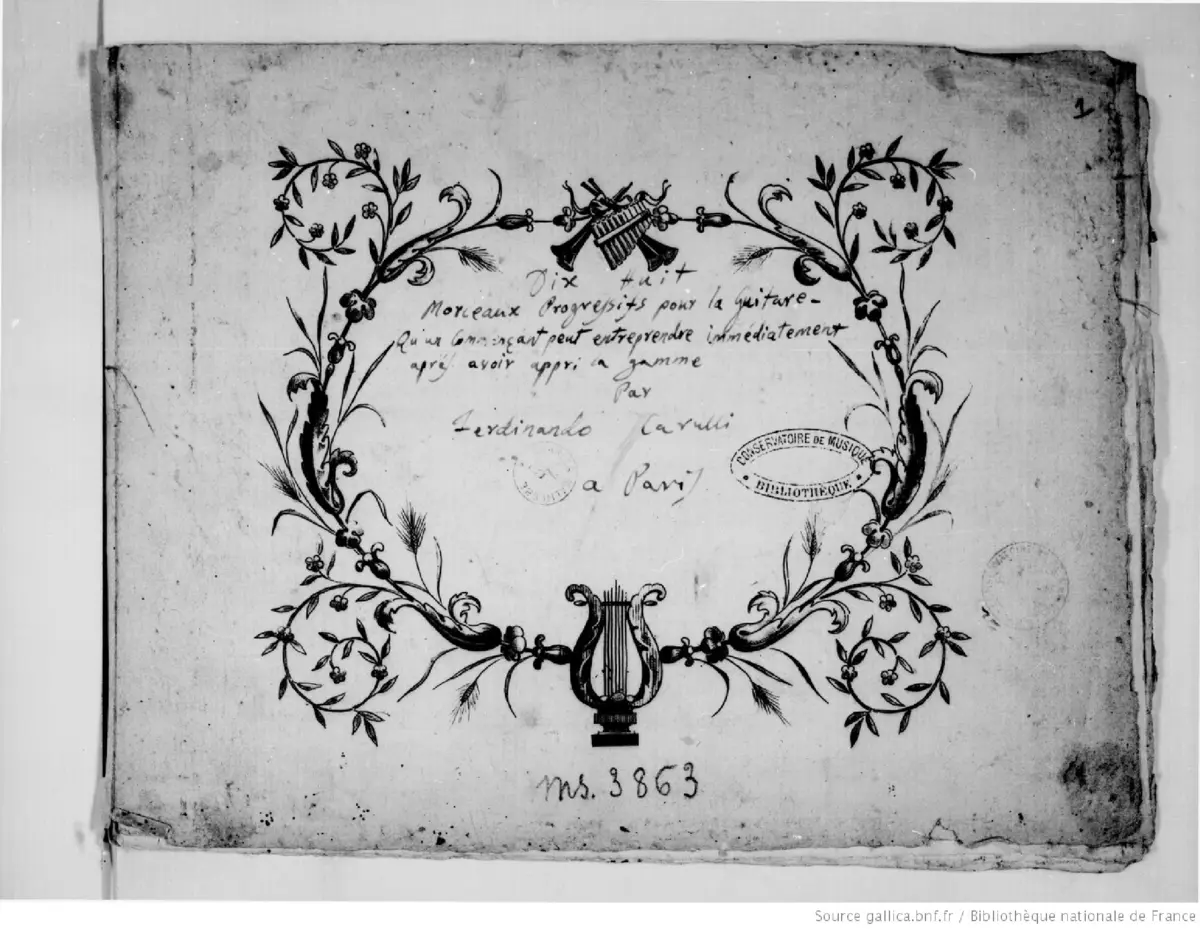 1
Dix Huit
Morceaux Progressifs pour la Guitare -
Qu'un Commençant peut entreprendre immédiatement
aprés avoir appri la gamme
Par
Ferdinando Carulli
a Paris
CONSERVATOIRE DE MUSIQUE
BIBLIOTHÈQUE
ms. 3863
Source gallica.bnf.fr / Bibliothèque nationale de France